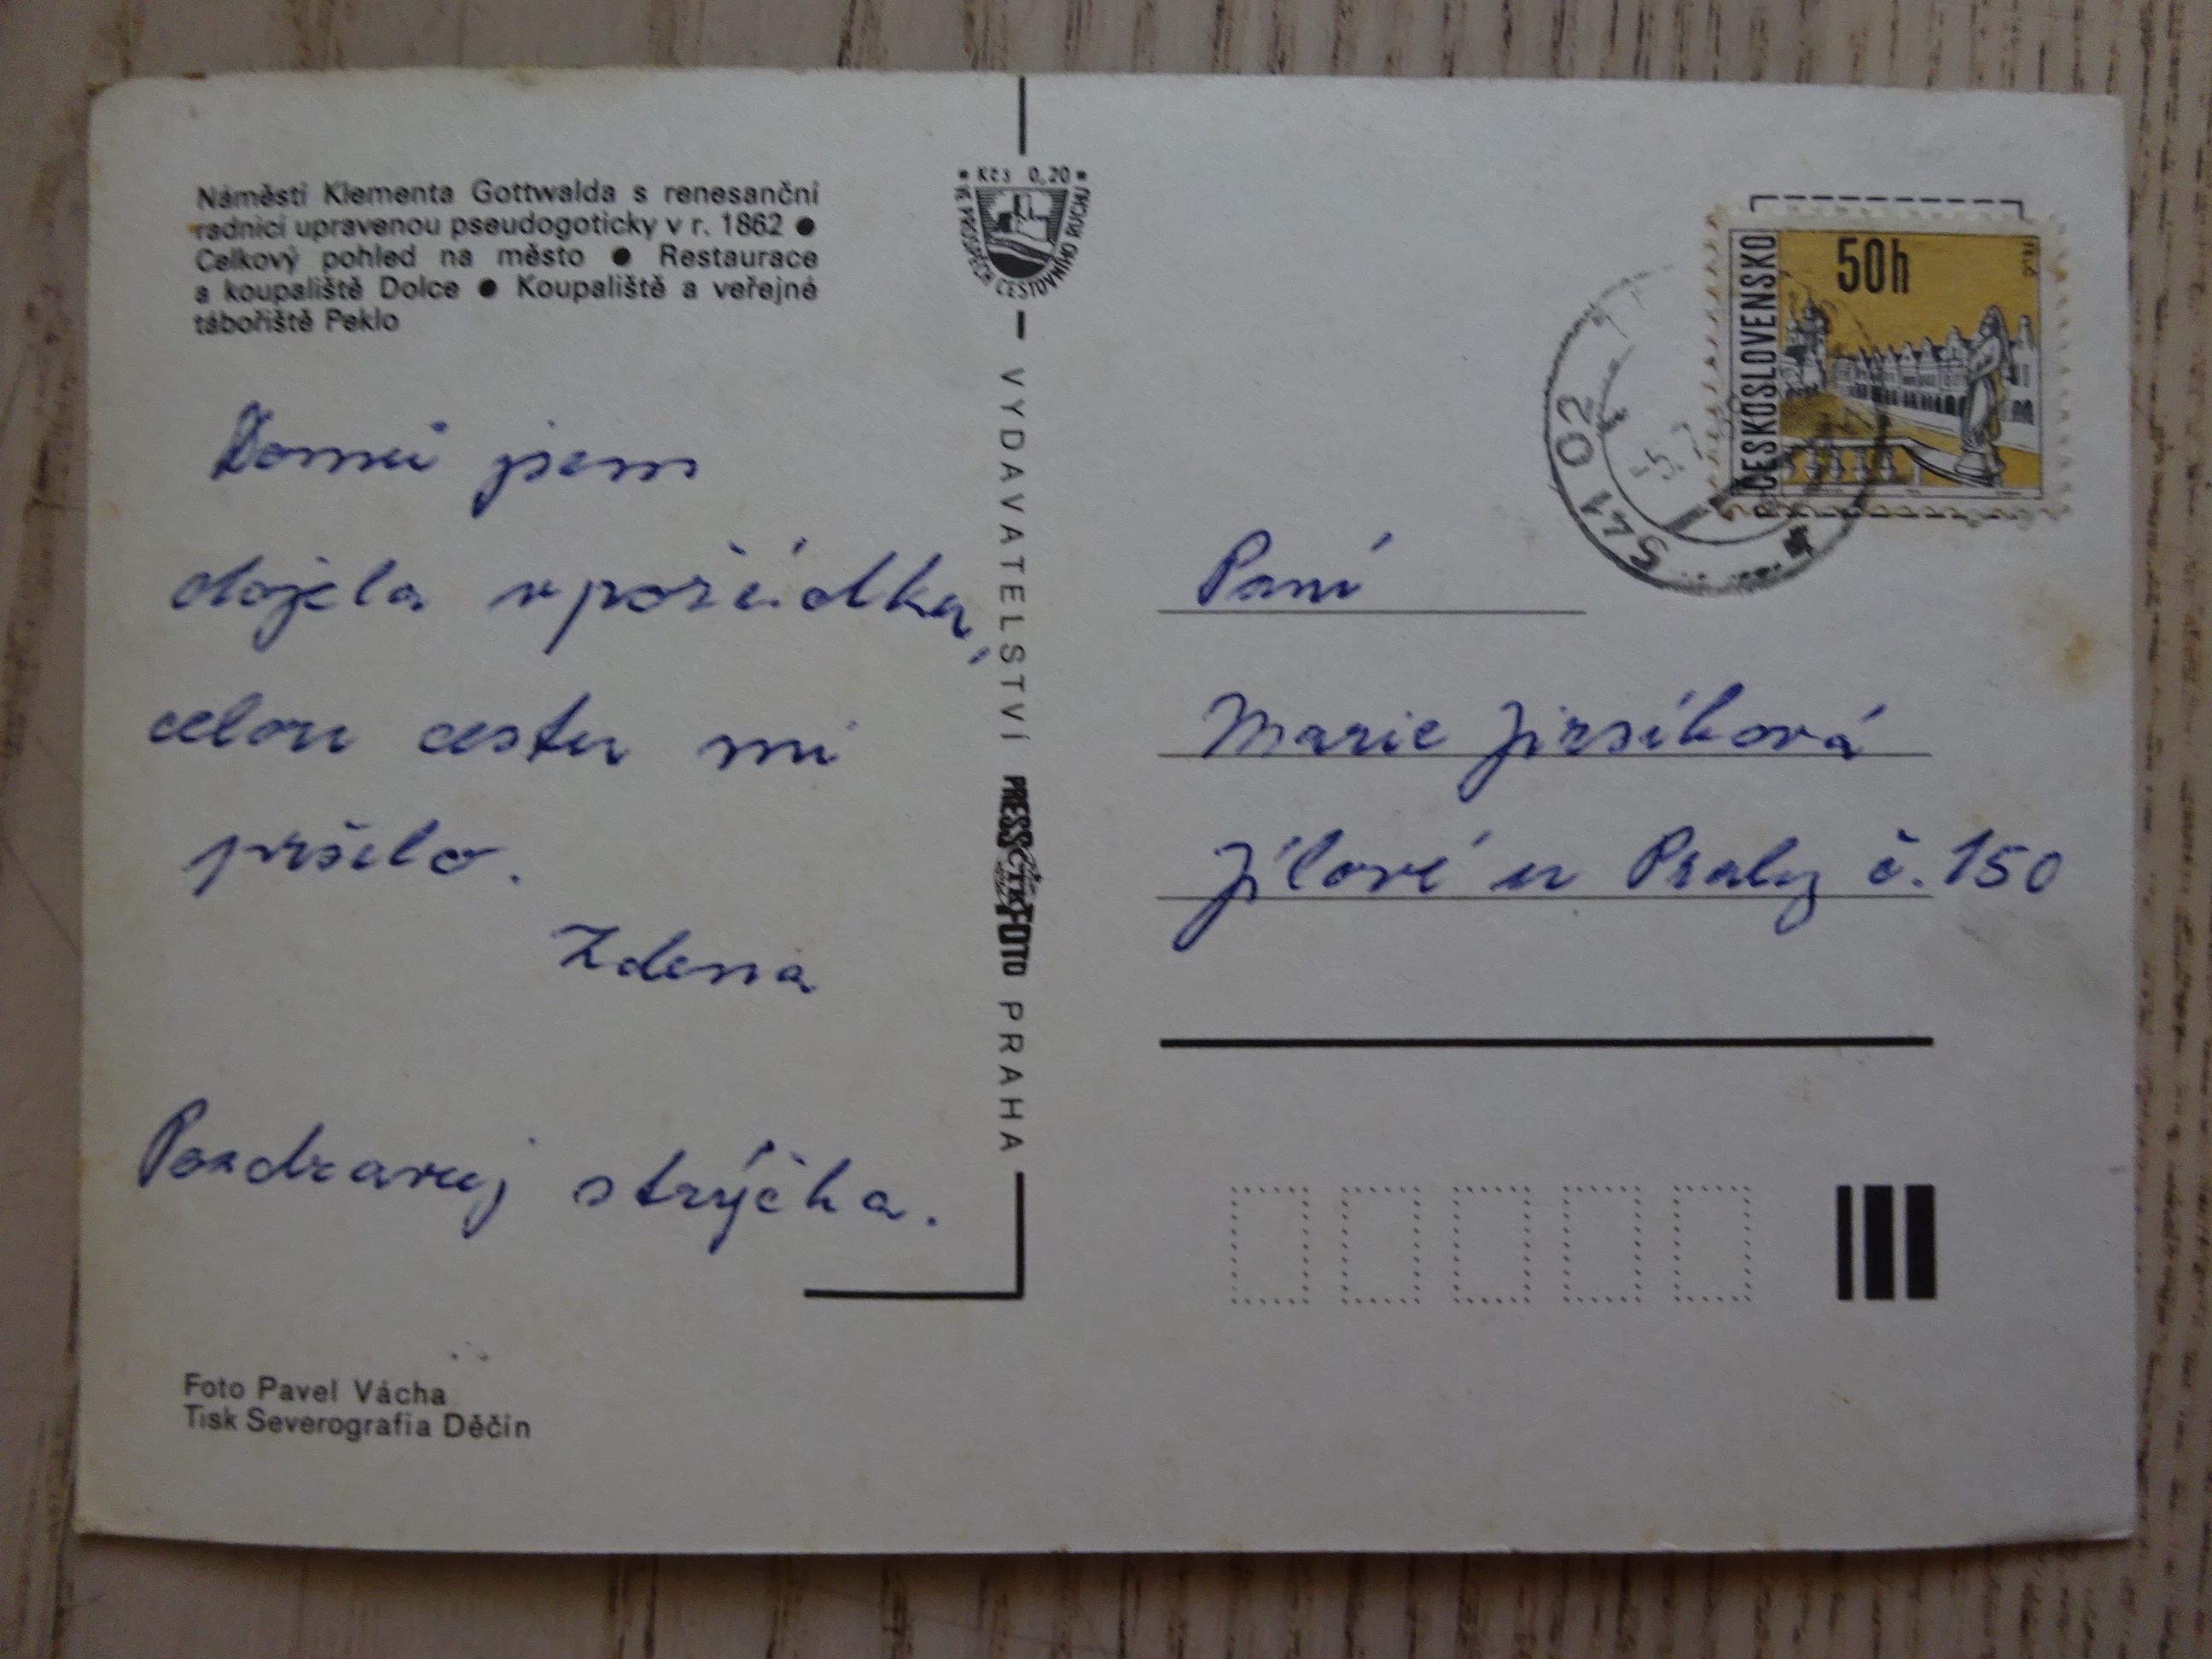 Náměstí Klementa Gottwalda s renesanční
radnicí upravenou pseudogoticky v r. 1862 ●
Celkový pohled na město ● Restaurace
a koupaliště Dolce ● Koupaliště a veřejné
tábořiště Peklo
Domů jsem
dojela v pořádku,
celou cestu mi
pršelo.
Zdena
Pozdravuj strýčka.
Foto Pavel Vácha
Tisk Severografia Děčín
Kčs 0,20
VE PROSPĚCH CESTOVNÍHO RUCHU
VYDAVATELSTVÍ PRESSFOTO PRAHA
ČTK
ČESKOSLOVENSKO
50h
TELČ
541 02
Paní
Marie Jirsíková
Jílové u Prahy č. 150